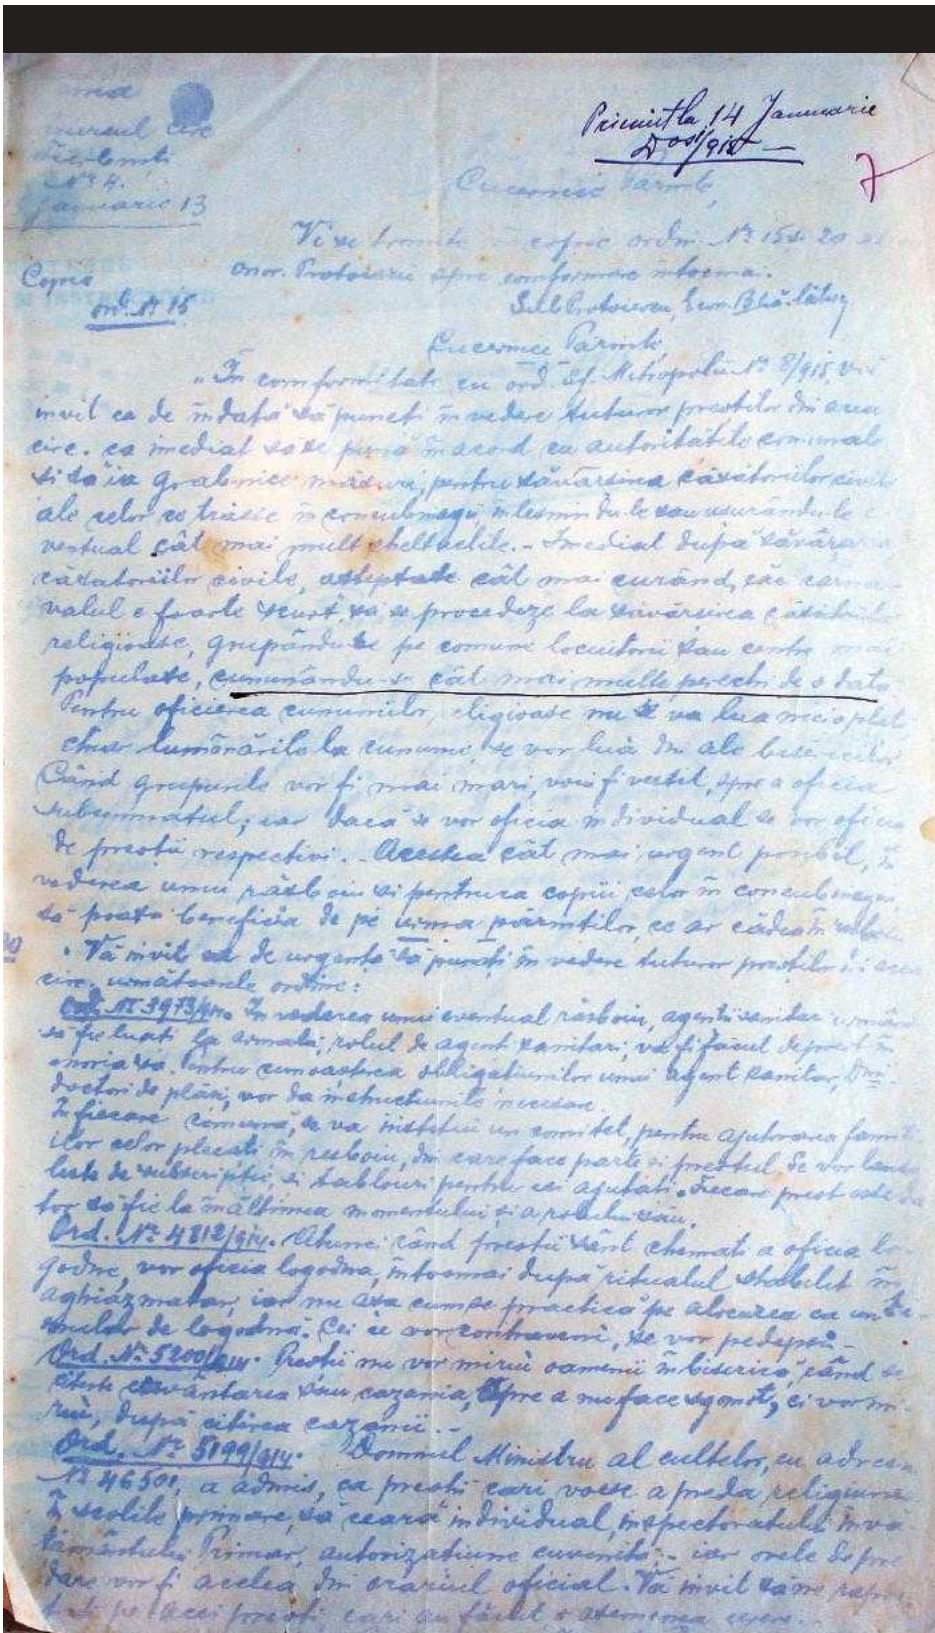 Primit la 14 Januarie
Dos /915 —
7
Cucernice Parinte,
No 4.
Januarie 13
Vi se trimite în copie ordin. No 15 și 20 al
onor. Protoierii spre conformare întocmai.
Copie
ord. No 15
Sub Protoiereu, Econ.
Cucernice Părinte,
"În conformitate cu ord. Sf. Mitropolii No 8/915, vă
invit ca de îndată să puneți în vedere tuturor preoților din acea
circ. ca imediat să se pună în acord cu autoritățile comunale
și să ia grabnice măsuri, pentru săvârșirea căsătoriilor civile
ale celor ce trăesc în concubinagii, înlesnindu-le sau ușurându-le e-
ventual cât mai mult cheltuelile. - Imediat după săvârșirea
căsătoriilor civile, așteptate cât mai curând, căci carna-
valul e foarte scurt, să se procedeze la săvârșirea căsătoriilor
religioase, grupându-se pe comune locuitorii sau centre mai
populate, cununându-se cât mai multe perechi de o dată.
Pentru oficierea cununiilor religioase nu se va lua nici o plată
chiar lumânările la cununie, se vor luà din ale bisericilor
Când grupurile vor fi mai mari, voiu fi vestit, spre a oficia
subsemnatul; iar dacă se vor oficia individual se vor oficia
de preoții respectivi. - Acestea cât mai urgent posibil, în
vederea unui răsboiu și pentru ca copiii celor în concubinagii
să poată beneficia de pe urma părinților, ce ar cădea în răsboiu
Vă invit ca de urgență să puneți în vedere tuturor preoților din acea
circ. următoarele ordine:
Ord. No 3973/914. În vederea unui eventual răsboiu, agenții sanitari urmând
să fie luați la armată, rolul de agent sanitar, va fi făcut de preot în
enoria sa. Pentru cunoașterea obligațiunilor unui agent sanitar, Dnii
doctori de plăși, vor da instrucțiunile necesare.
În fiecare comună, se va institui un comitet, pentru ajutorarea famili-
ilor celor plecați în resboiu, din care face parte și preotul. Se vor lansa
liste de subscripție, și tablouri pentru cei ajutați. Fiecare preot este da-
tor să fie la înălțimea momentului și a rolului său.
Ord. No 4812/914. Atunci când preoții sânt chemați a oficia lo-
godne, vor oficia logodna, întocmai după ritualul stabilit în
aghiazmatar, iar nu așa cum se practică pe alocurea cu
inelilor de logodnă. Cei ce vor contraveni, se vor pedepsi -
Ord. No 5200/914. Preoții nu vor mirui oamenii în biserică, când se
citește cuvântarea sau cazania, spre a nu face sgomot, ci vor mi-
rui, după citirea cazanii. -
Ord. No 5199/914. Domnul Ministru al cultelor, cu adresa
No 46501, a admis, ca preoții cari voesc a preda religiunea
în școlile primare, să ceară individual, inspectoratului învă-
țământului Primar, autorizațiune cuvenită; - iar orele de pre-
dare vor fi acelea din orariul oficial. Vă invit să-mi rapor-
tați pe acei preoți cari au făcut o asemenea